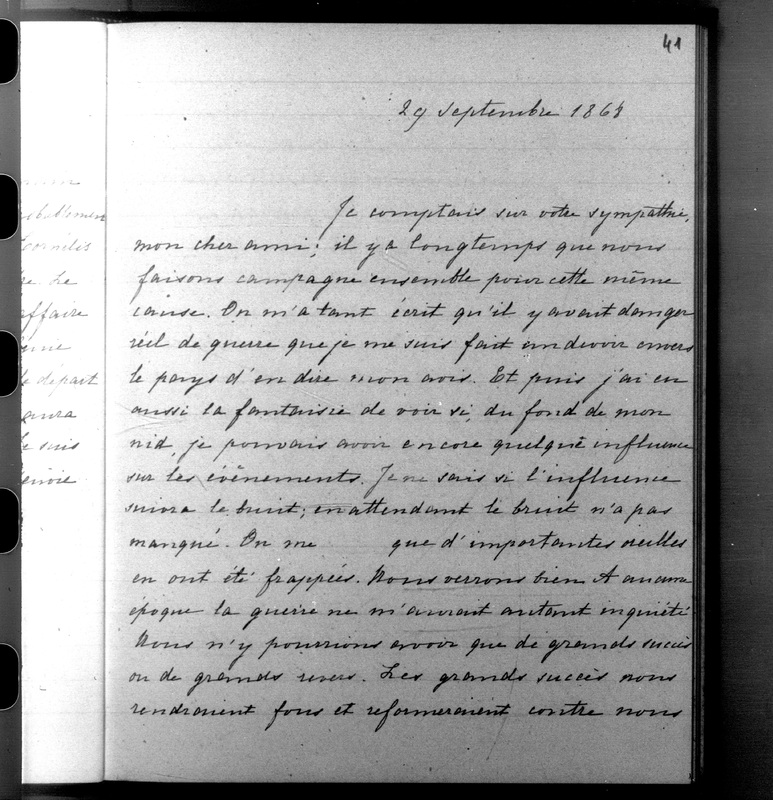 41
29 septembre 1868
Je comptais sur votre sympathie,
mon cher ami; il y a longtemps que nous
faisons campagne ensemble pour cette même
cause. On m'a tant écrit qu'il y avait danger
réel de guerre que je me suis fait un devoir envers
le pays d'en dire mon avis. Et puis j'ai eu
aussi la fantaisie de voir si, du fond de mon
nid, je pouvais avoir encore quelque influence
sur les événements. Je ne sais si l'influence
suivra le bruit; en attendant le bruit n'a pas
manqué. On me que d'importantes oreilles
en ont été frappées. Nous verrons bien. A aucune
époque la guerre ne m'aurait autant inquiété
Nous n'y pourrions avoir que de grands succès
ou de grands revers. Les grands succès nous
rendraient fous et reformeraient contre nous
affaire
départ
aura
suis